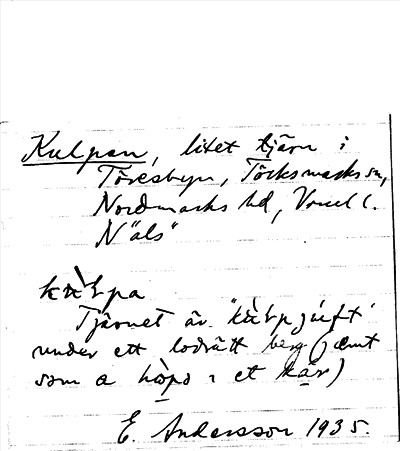 Kulpan, litet tjärn i
Töresbyn, Töcksmarks sn,
Nordmarks hd, Vrml l.
N "äls"
Tjärnet är
under ett lodrätt berg (jämt
som a i et kar)
E. Andersson 1935.